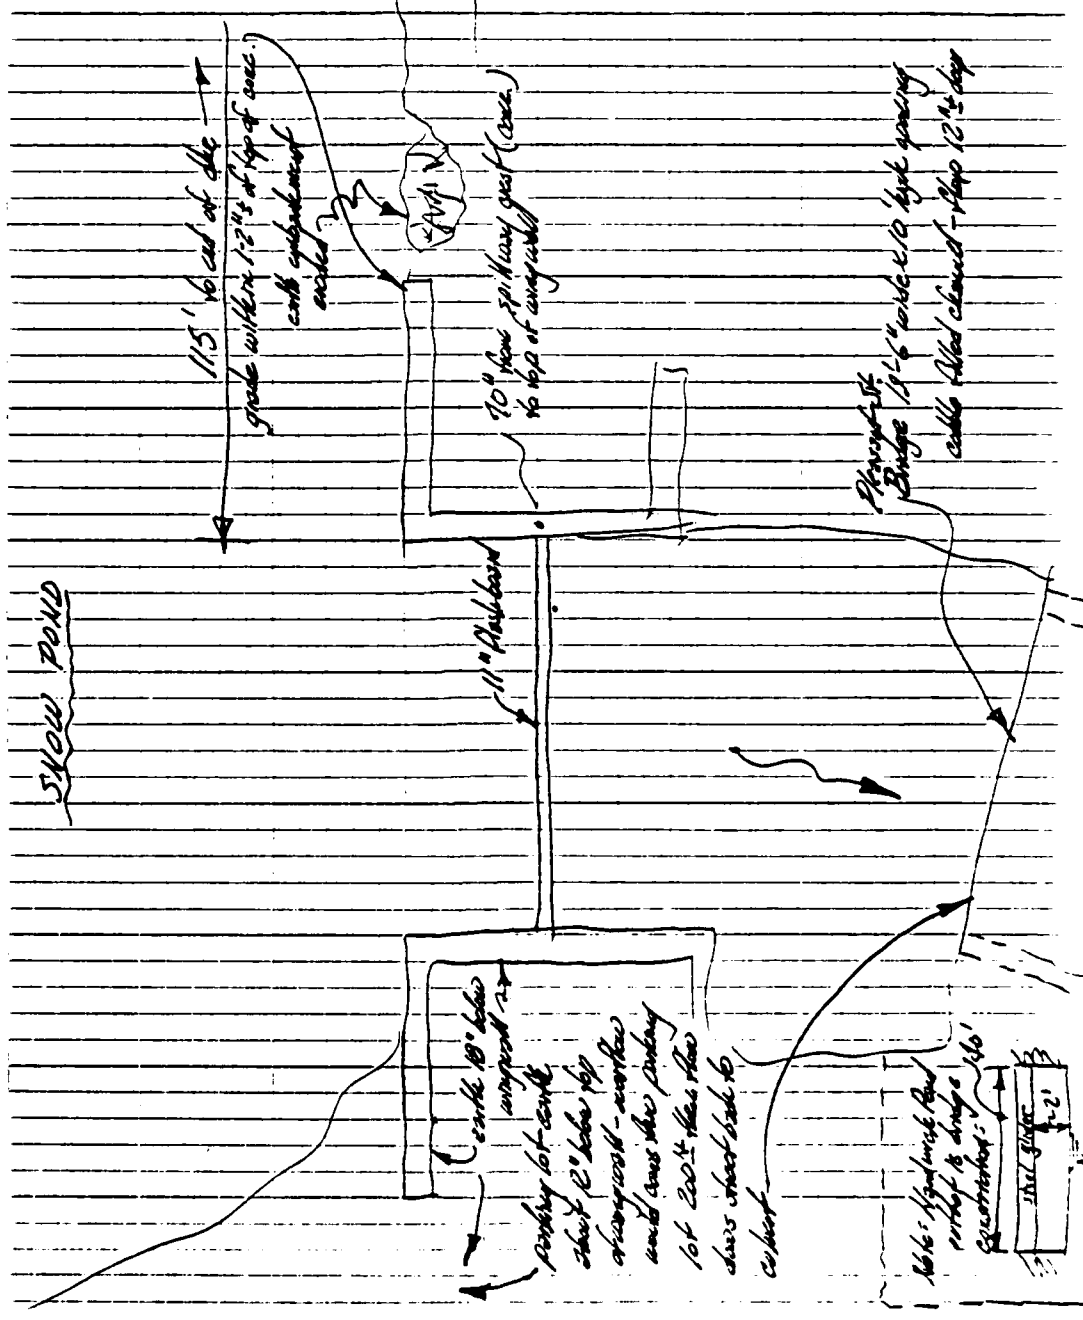 SNOW POND
115' to end of dike
grade within 1-2"± of top of conc.
earth embankment
eroded
70" from spillway crest (conc.)
to top of wingwall
11" flashboard
Pleasant St.
Bridge 19'-6" wide x 10' high opening
cobble filled channel - 12"± deep
earth 18" below
wingwall
parking lot - earth
about 12" below top
of wingwall - overflow
would cross the parking
lot 200'± then flow
down street back to
culvert
Note: outlet
is bridge
constructed:
40'
steel girder
2'